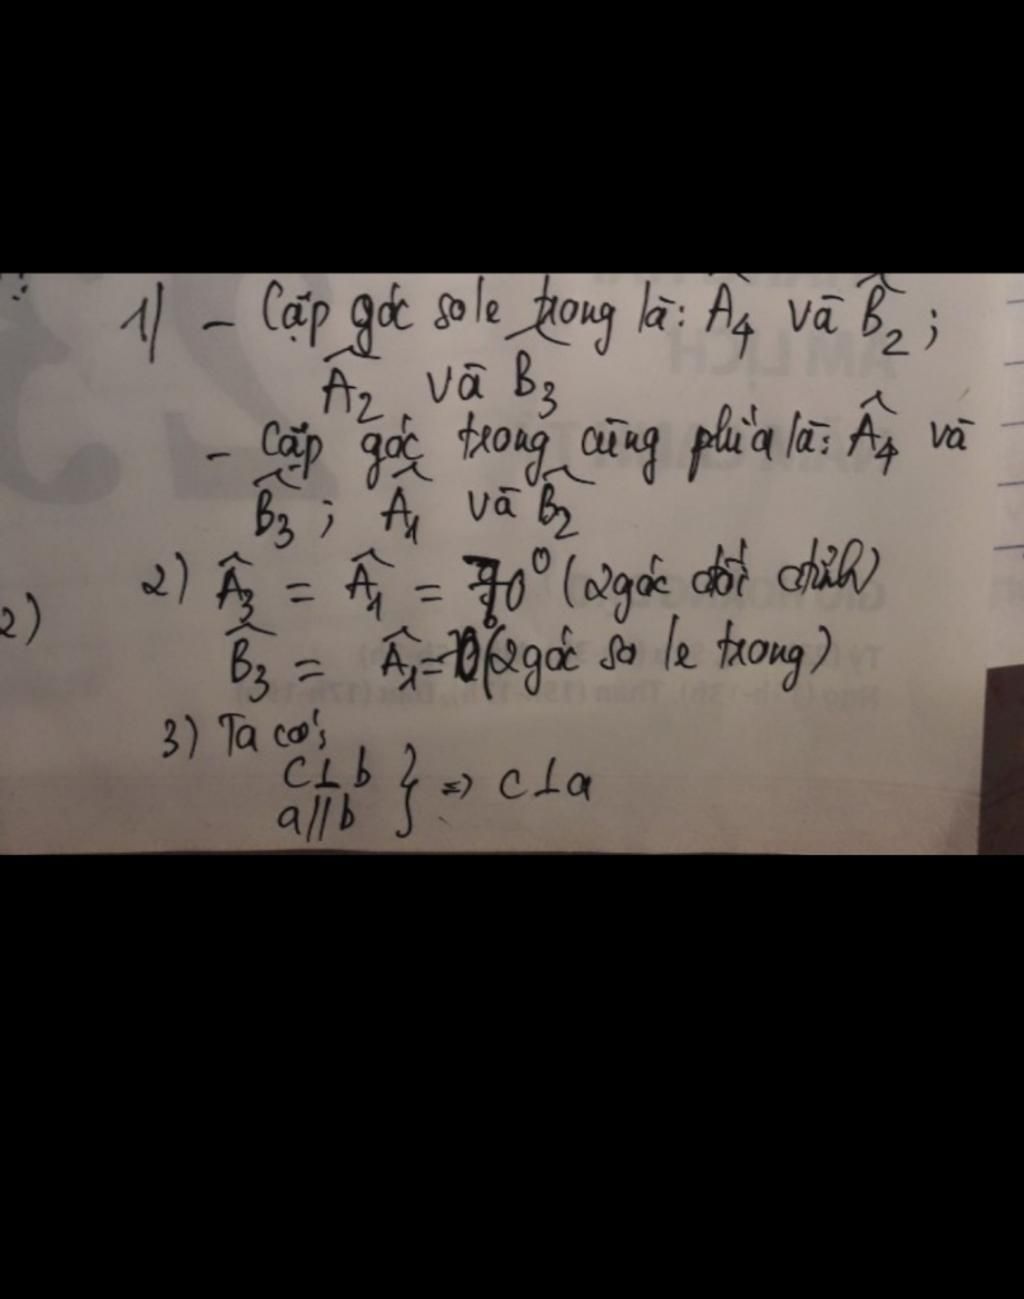 1) - Cặp góc so le trong là: Â4 và B̂2;
Â2 và B3
- Cặp góc trong cùng phía là: Â4 và
B̂3; Â1 và B̂2
2) Â3 = Â1 = 70° (2 góc đối đỉnh)
2)
B̂3 = Â1 = (2 góc so le trong)
3) Ta có:
c⊥b
a//b } => c⊥a